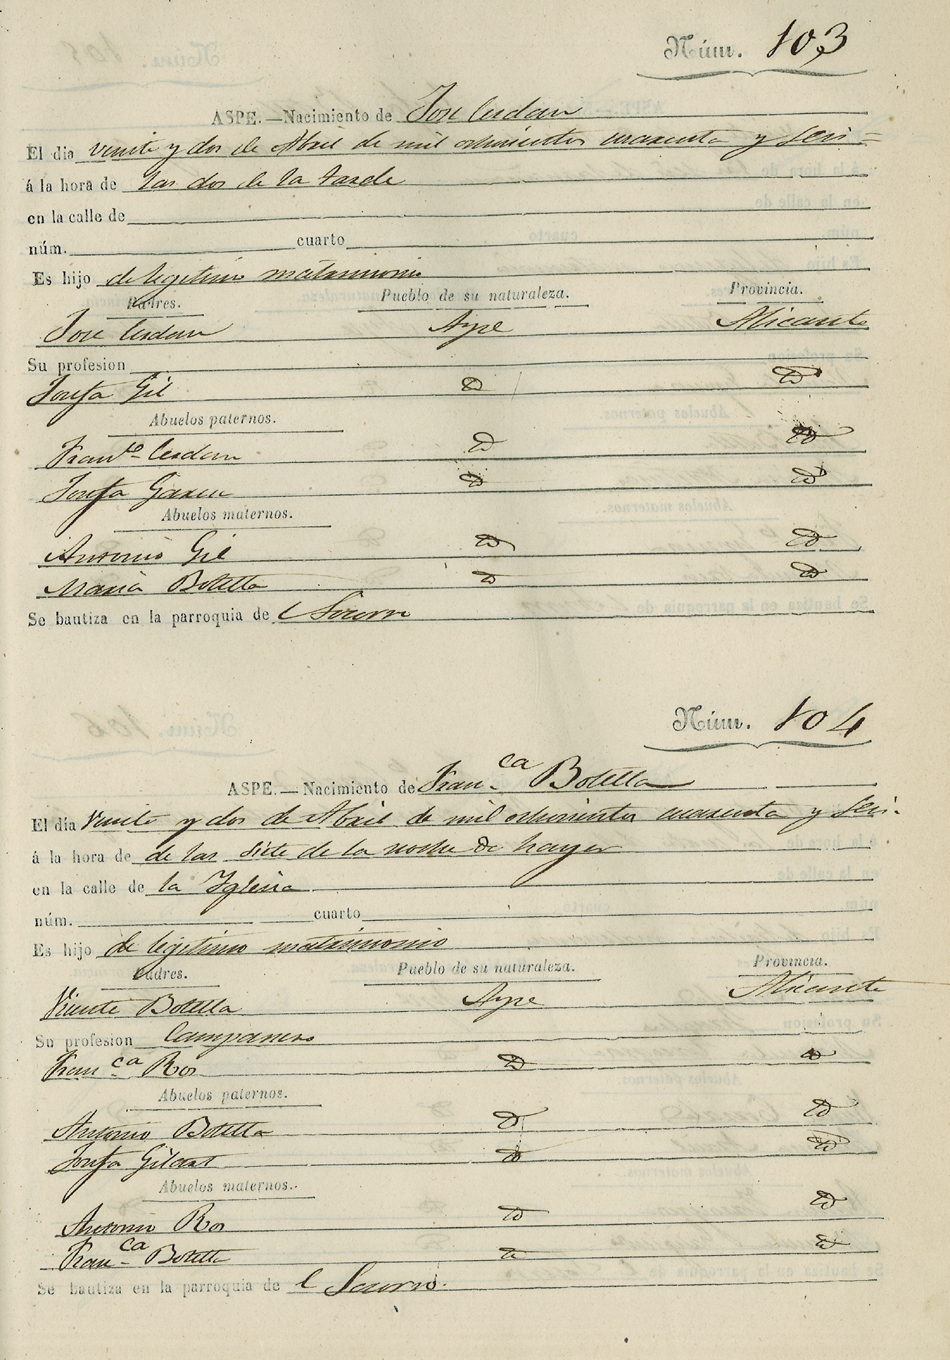 Núm. 103
ASPE.—Nacimiento de Jose Cerdan
El dia veinte y dos de Abril de mil ochocientos cuarenta y seis
á la hora de las dos de la tarde
en la calle de
núm. cuarto
Es hijo de legitimo matrimonio
Padres. Pueblo de su naturaleza. Provincia.
Jose Cerdan Aspe Alicante
Su profesion
Josefa Gil Id Id
Abuelos paternos.
Fran.co Cerdan Id Id
Josefa Garcia Id Id
Abuelos maternos.
Antonio Gil Id Id
Maria Botella Id Id
Se bautiza en la parroquia de l Socorro
Núm. 104
ASPE.—Nacimiento de Fran.ca Botella
El dia Veinte y dos de Abril de mil ochocientos cuarenta y seis.
á la hora de de las siete de la noche de hayer
en la calle de la Iglesia
núm. cuarto
Es hijo de legitimo matrimonio
Padres. Pueblo de su naturaleza. Provincia.
Vicente Botella Aspe Alicante
Su profesion Campanero
Fran.ca Ros Id Id
Abuelos paternos.
Antonio Botella Id Id
Josefa Id Id
Abuelos maternos.
Antonio Ros Id Id
Fran.ca Botella Id Id
Se bautiza en la parroquia de l Socorro.